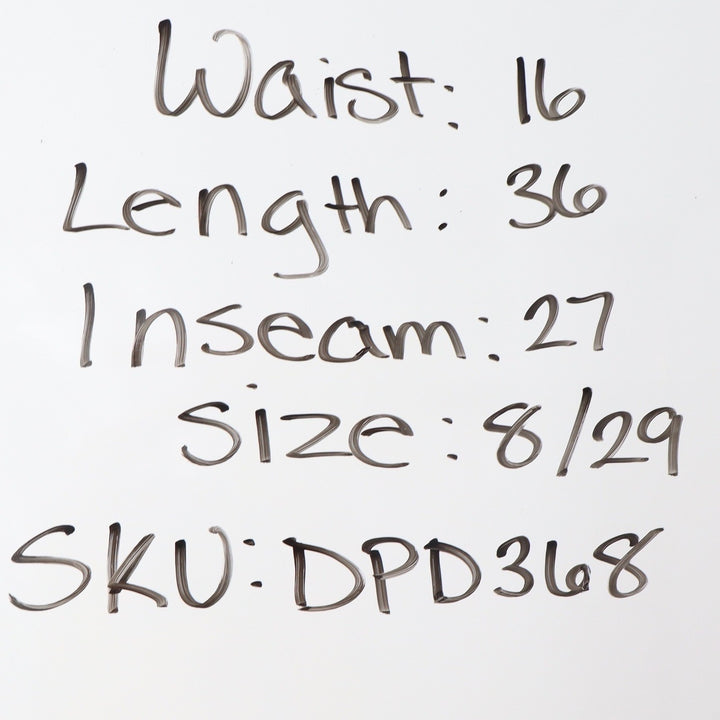 Waist: 16
Length: 36
Inseam: 27
Size: 8/29
SKU: DPD368